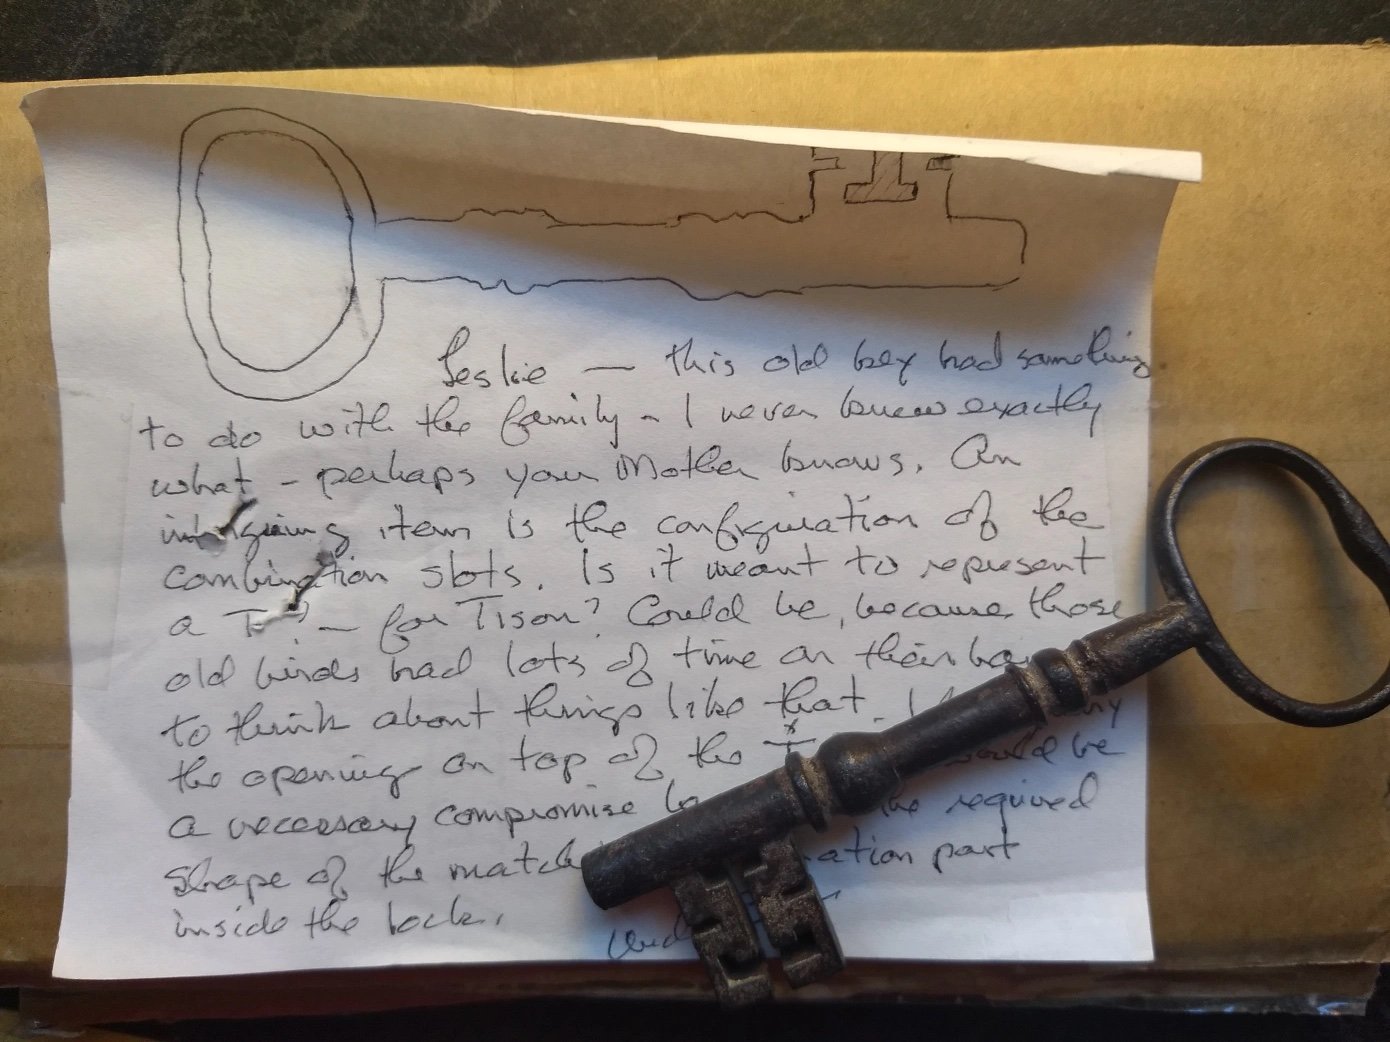 Leslie — this old key had something
to do with the family - I never knew exactly
what - perhaps your Mother knows. An
intriguing item is the configuration of the
combination slots. Is it meant to represent
a T? — for Tison? Could be, because those
old birds had lots of time on their
to think about things like that. I
the opening on top of the T would be
a necessary compromise the required
shape of the part
inside the lock.